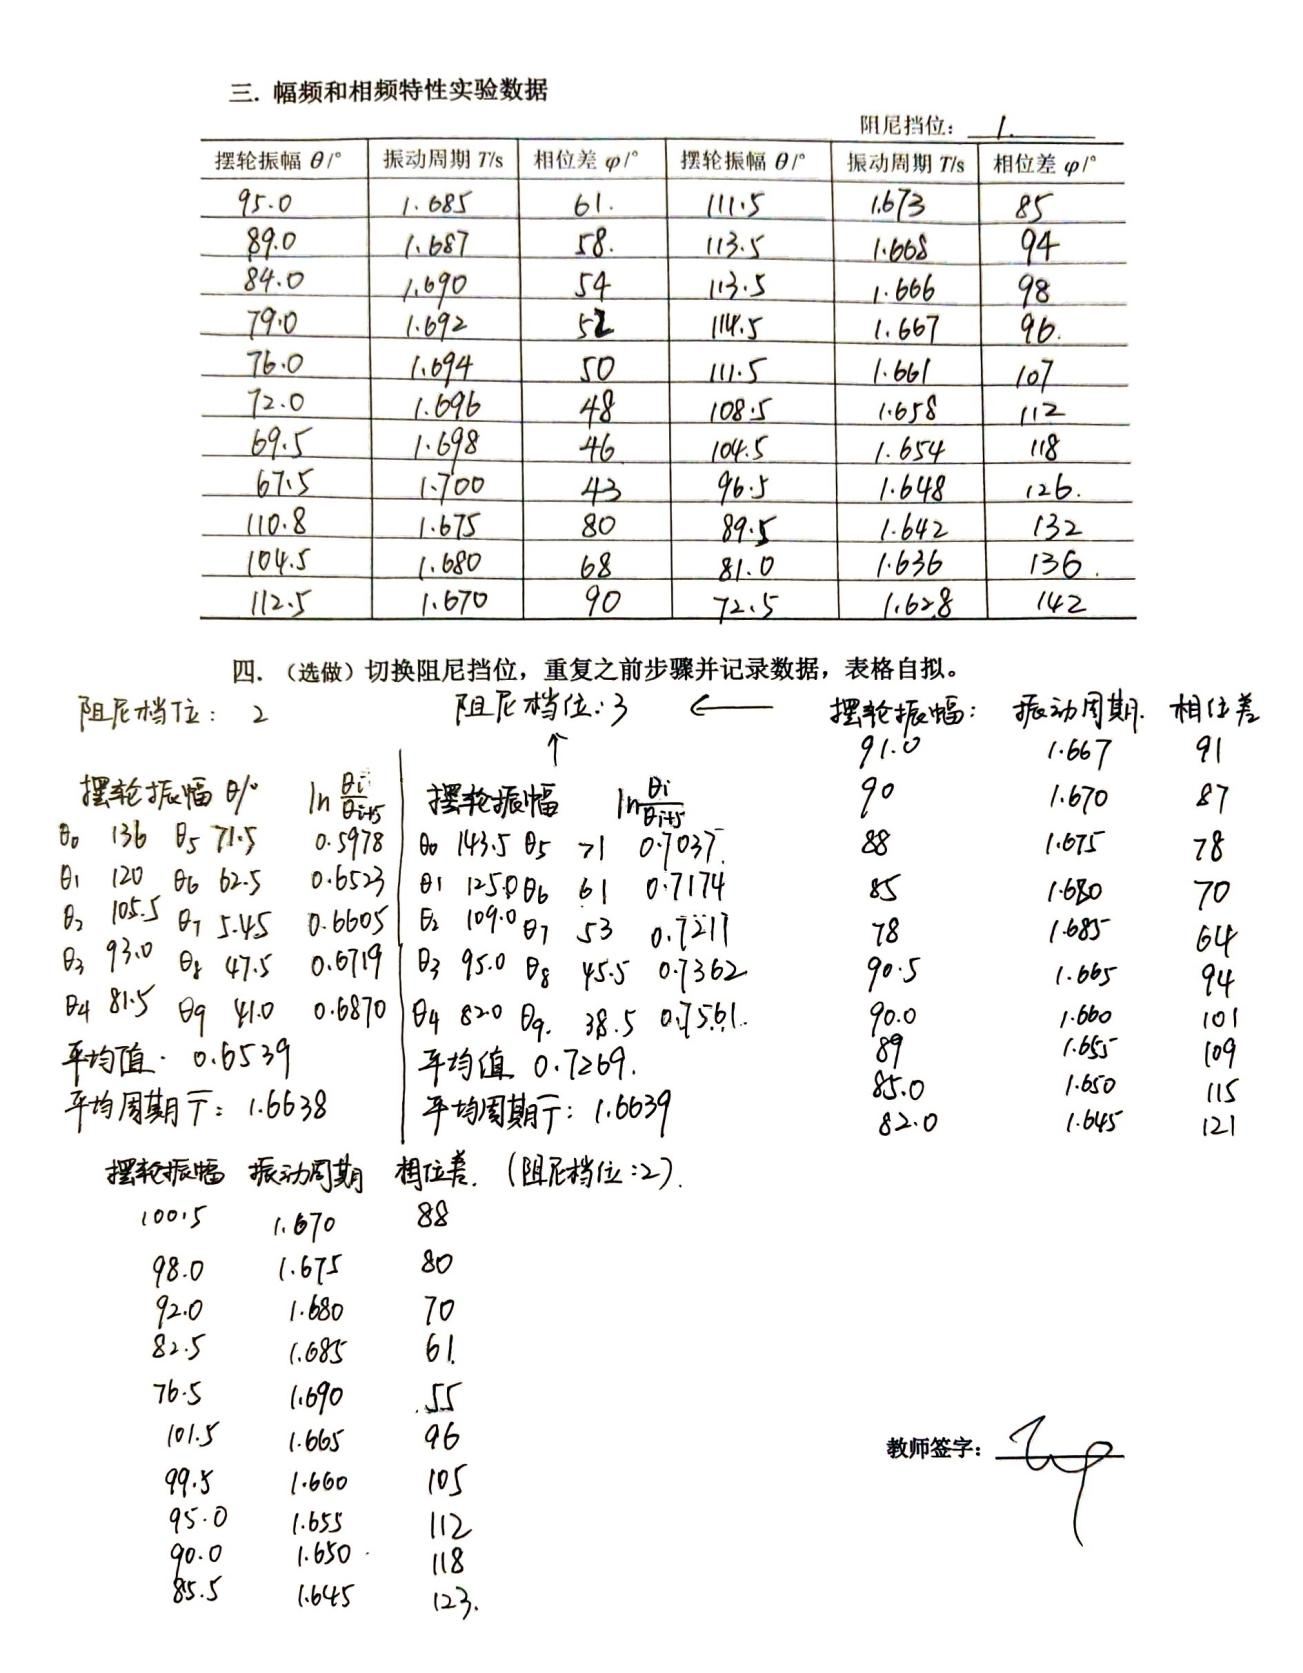 三. 幅频和相频特性实验数据
阻尼挡位: 1.
摆轮振幅 θ/° 振动周期 T/s 相位差 φ/° 摆轮振幅 θ/° 振动周期 T/s 相位差 φ/°
95.0 1.685 61. 111.5 1.673 85
89.0 1.687 58. 113.5 1.668 94
84.0 1.690 54 113.5 1.666 98
79.0 1.692 52 114.5 1.667 96.
76.0 1.694 50 111.5 1.661 107
72.0 1.696 48 108.5 1.658 112
69.5 1.698 46 104.5 1.654 118
67.5 1.700 43 96.5 1.648 126.
110.8 1.675 80 89.5 1.642 132
104.5 1.680 68 81.0 1.636 136.
112.5 1.670 90 72.5 1.628 142
四. (选做) 切换阻尼挡位,重复之前步骤并记录数据,表格自拟。
阻尼档位: 2
摆轮振幅 θ/° ln θi/θi+5
θ0 136 θ5 71.5 0.5978
θ1 120 θ6 62.5 0.6523
θ2 105.5 θ7 5.45 0.6605
θ3 93.0 θ8 47.5 0.6719
θ4 81.5 θ9 41.0 0.6870
平均值. 0.6539
平均周期T̅: 1.6638
阻尼档位: 3 ←
↑
摆轮振幅 ln θi/θi+5
θ0 143.5 θ5 71 0.7037
θ1 125.0 θ6 61 0.7174
θ2 109.0 θ7 53 0.7211
θ3 95.0 θ8 45.5 0.7362
θ4 82.0 θ9. 38.5 0.7561.
平均值 0.7269.
平均周期T̅: 1.6639
摆轮振幅: 振动周期. 相位差
91.0 1.667 91
90 1.670 87
88 1.675 78
85 1.680 70
78 1.685 64
90.5 1.665 94
90.0 1.660 101
89 1.655 109
85.0 1.650 115
82.0 1.645 121
摆轮振幅 振动周期 相位差. (阻尼档位:2).
100.5 1.670 88
98.0 1.675 80
92.0 1.680 70
82.5 1.685 61.
76.5 1.690 55
101.5 1.665 96
99.5 1.660 105
95.0 1.655 112
90.0 1.650 118
85.5 1.645 123.
教师签字: